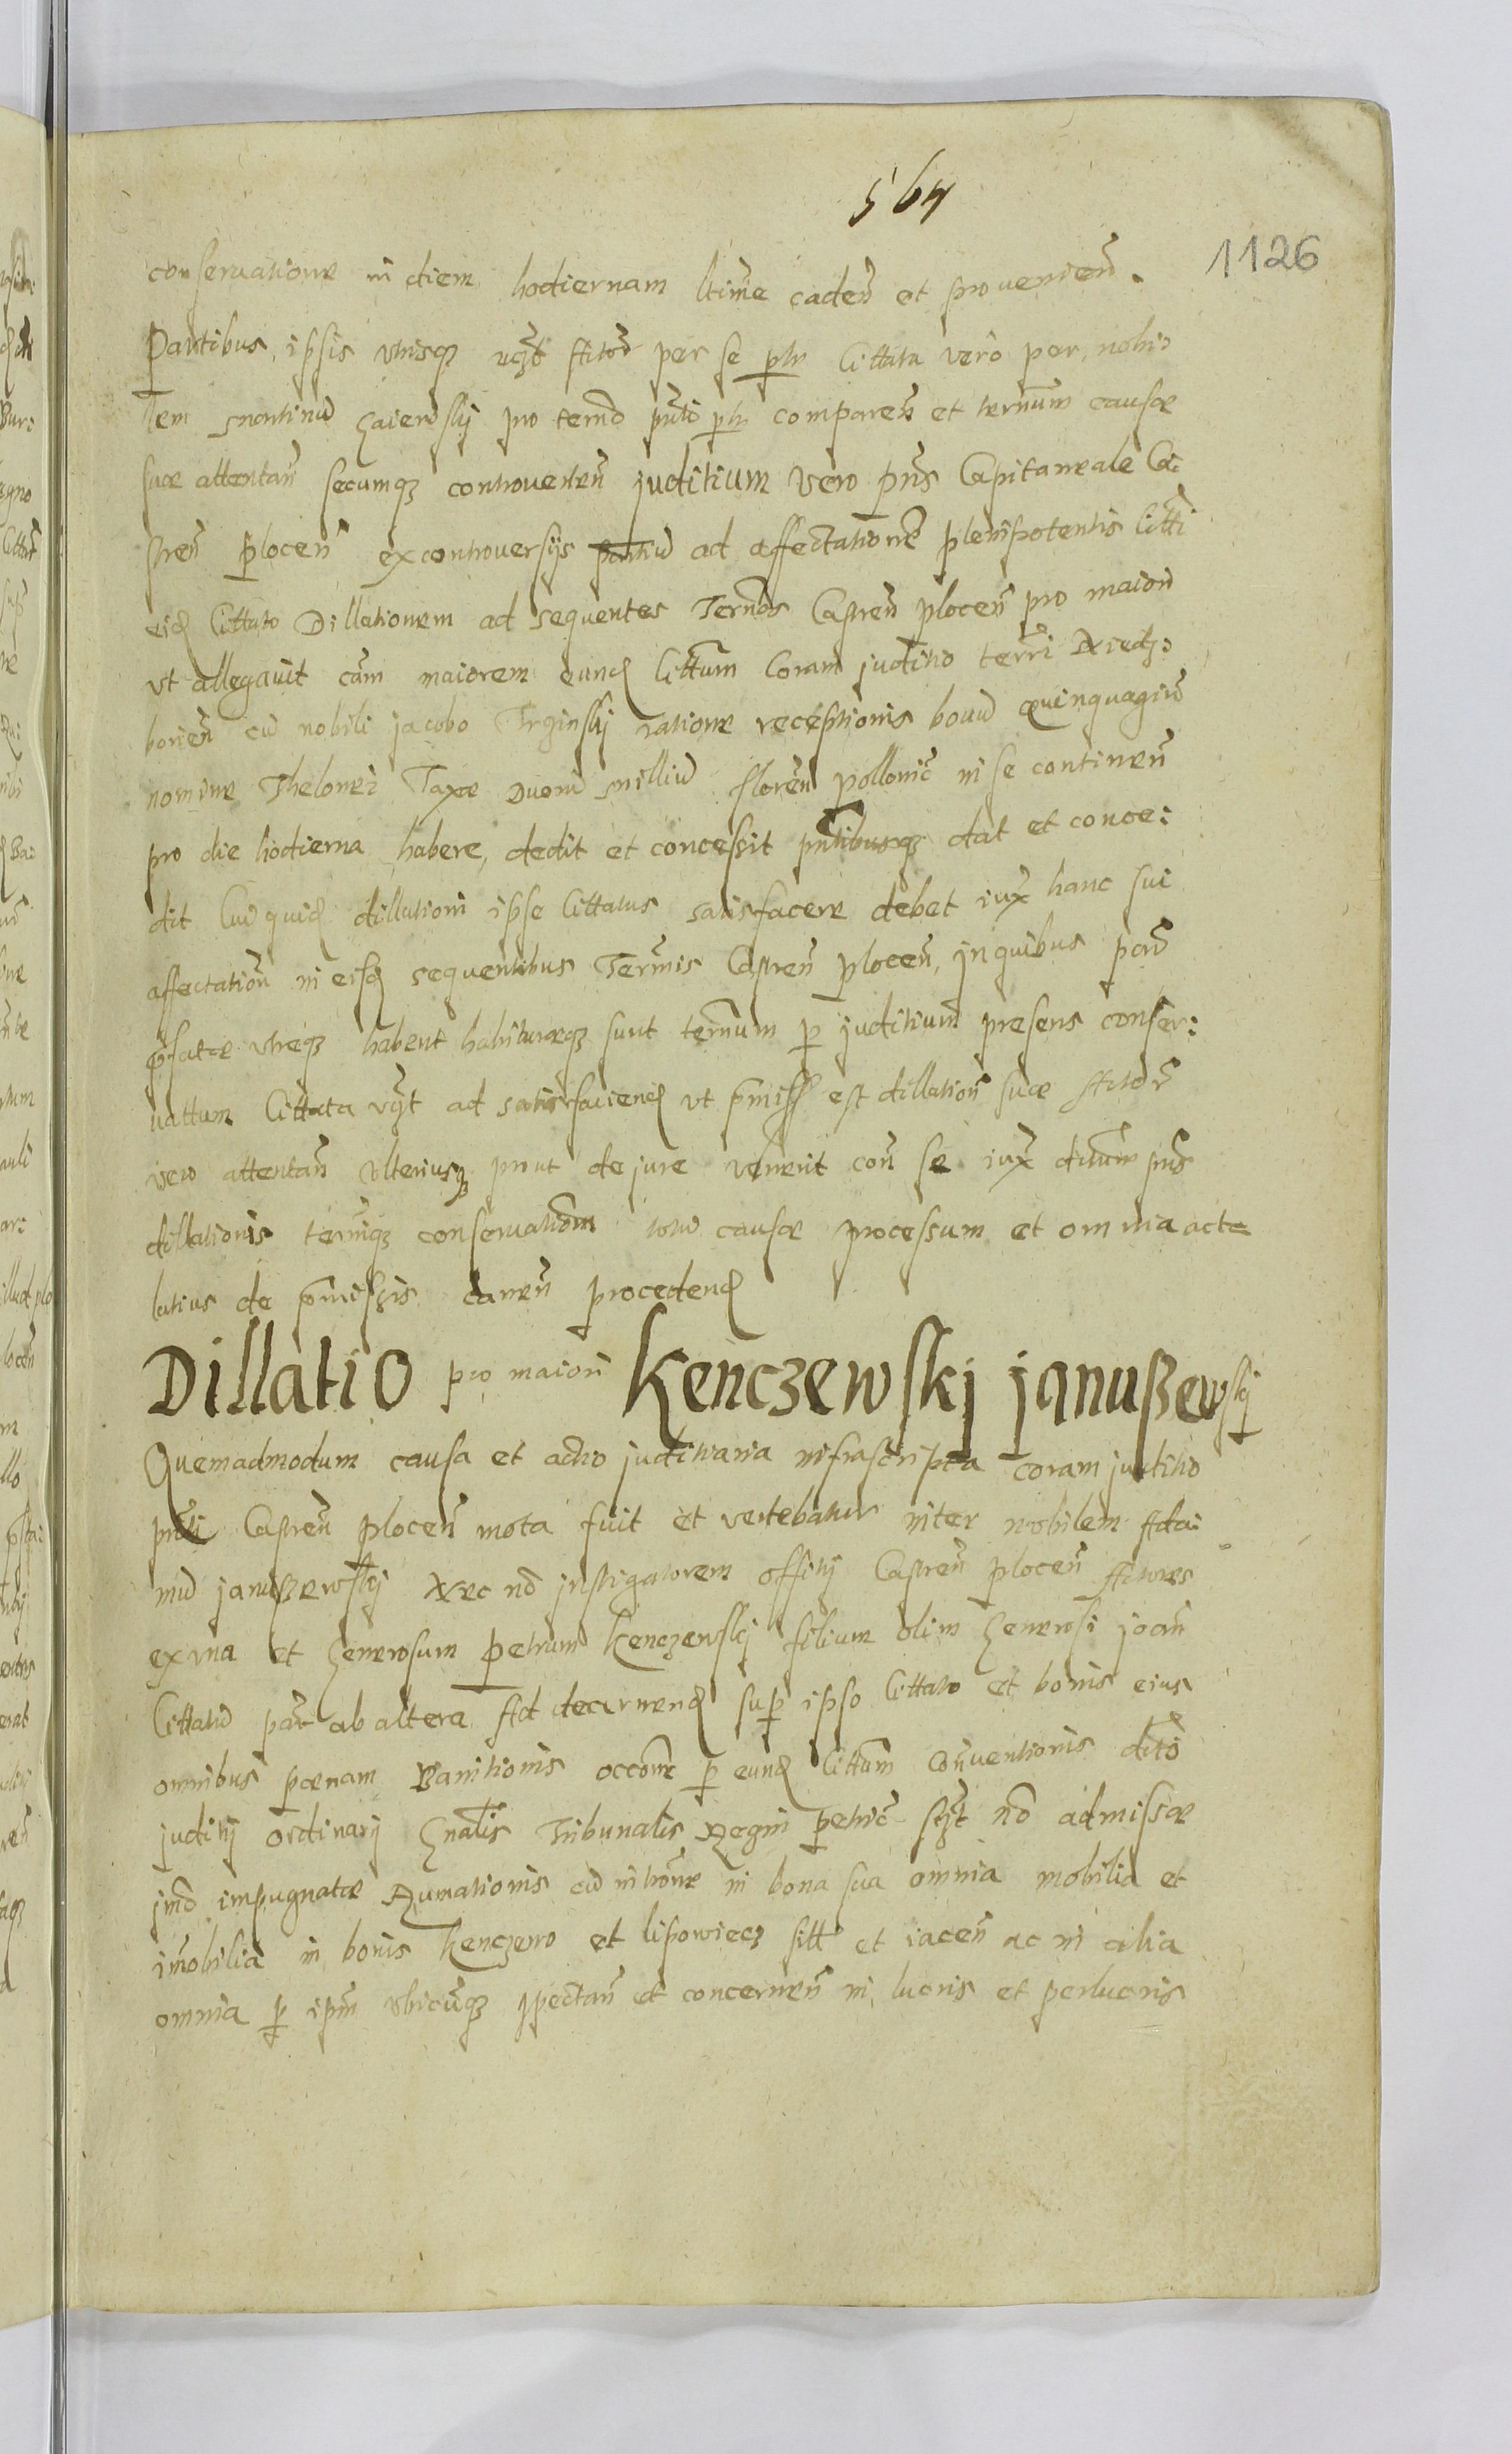 564
1126
conservatione in diem hodiernam ltime caden et provenien.
Partibus ipsis utrisq uzt Actor per se plr Cittata vero per nobi:
lem Martinu Zaiewskj pro termo pnti plr comparen et termum causae
suae attentan secumq controverten juditium vero pns Capitaneale Ca:
stren plocen ex controversijs partiu ad affectatione plenipotentis citti
eid Cittato Dillationem ad sequentes Termos Castren plocen pro maiori
ut allegavit cam maiorem eund Cittum Coram juditio terri
borien cu nobili jacobo ratione receptionis bouu quinquaginta
nomine Thelonei Taxae Duoru Milliu floren pollonic in se continen
pro die hodierna habere, dedit et concessit pntibusq dat et conce:
dit Cui quid dillationi ipse Cittatus satisfacere debet iux hanc sui
affectation in eisd sequentibus Termis Castren plocen, in quibus part
pfatae utreq habent habituraeq sunt termum p juditium presens conser:
vattum Cittata uzt ad satisfaciend ut pmiss est dillation suae Actor
vero attentan ulteriusq prout de jure venerit con se iux dictum pns
dillationis termiq conservationem totu causae processum et omnia acta
latius de pmissis canen procedend
Dillatio pro maiori Kenczewskj januszewskj
Quemadmodum causa et actio juditiaria infrascripta coram juditio
pnti Castren plocen mota fuit et vertebatur inter nobilem Ada:
mu januszewskj Nec no instigatorem offitij Castren plocen Actores
ex una et Generosum petrum Kenczewskj filium olim Generosi joan
Cittatu part ab altera Ad decernend sup ipso Cittato et bonis eius
omnibus poenam Banitionis occone p eund Cittum Conventionis
juditij ordinarij Gnalis Tribunalis Regni petric no admissae
jmo impugnatae Rumationis cu introne in bona sua omnia mobilia et
imobilia in bonis Kenczewo et lipowiecz sitt et iacen ac in alia
omnia p ipm ubicuq spectan et concernen in lucris et perlucris